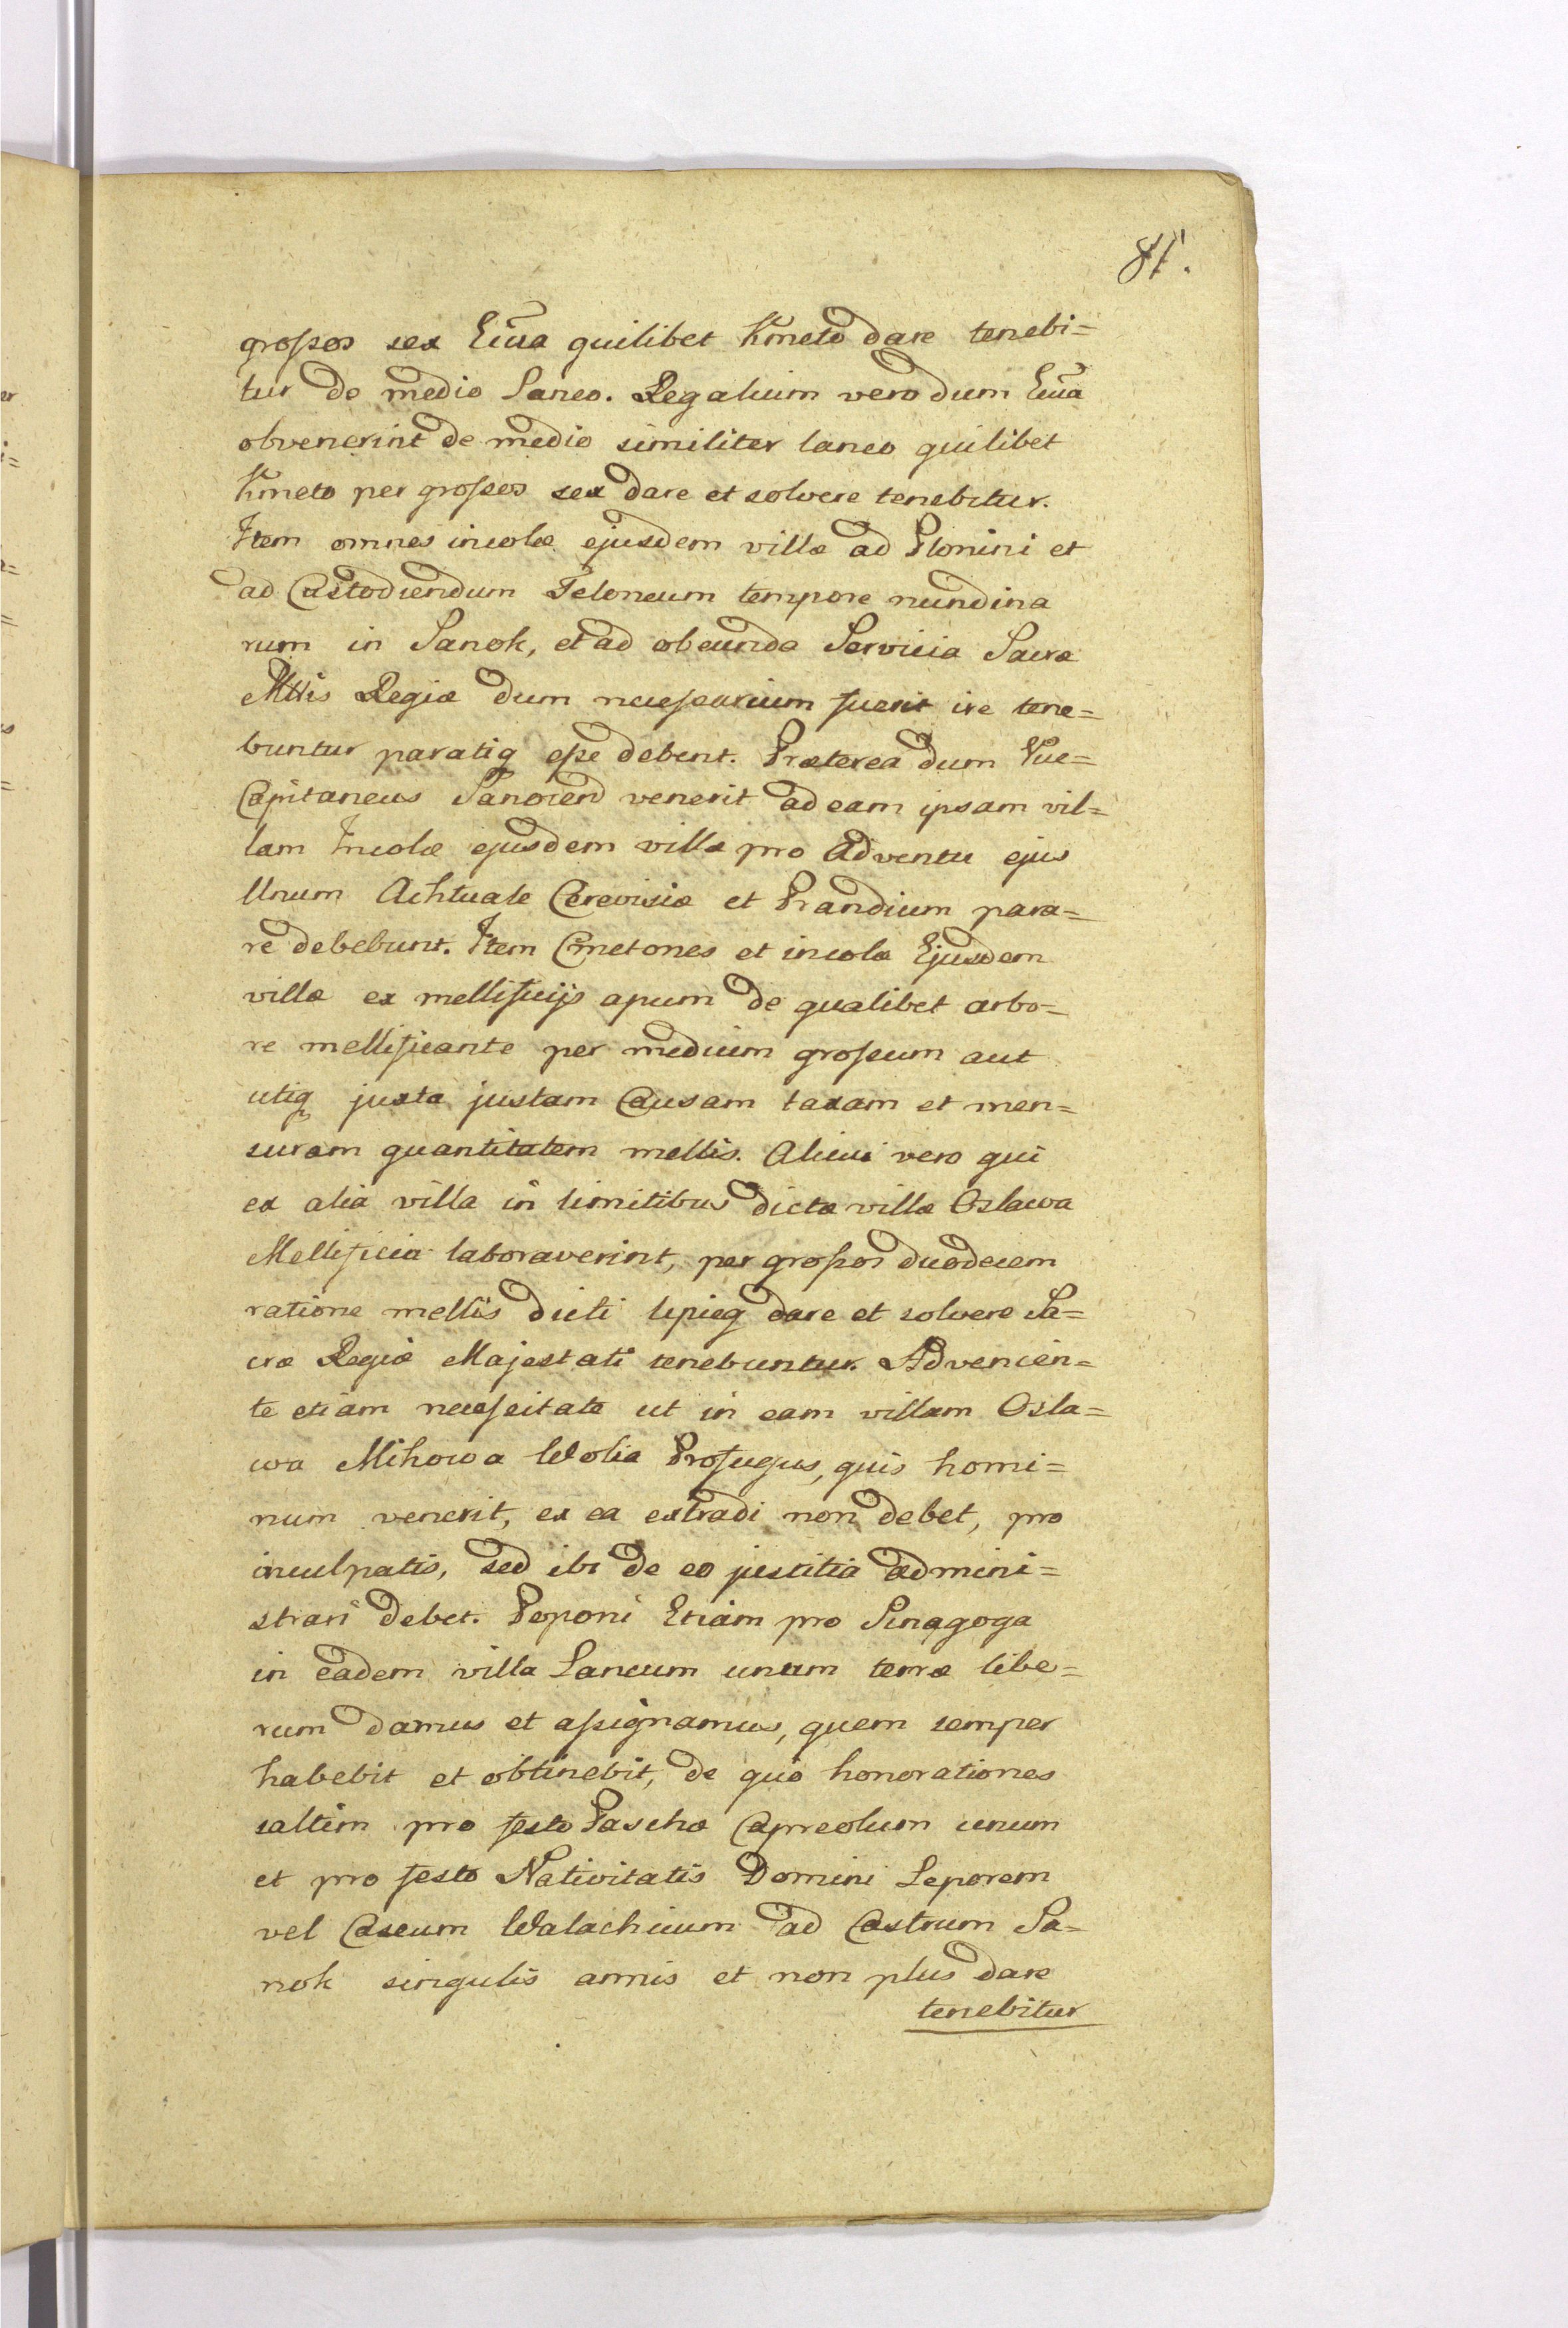 81.
großos sex Eiūa quilibet Kmeto dare tenebi=
tur de medio Laneo. Regalium vero dum Eiūa
obvenerint de medio similiter laneo quilibet
Kmeto per großos sex dare et solvere tenebitur.
Item omnes incolæ ejusdem villæ ad Plonini et
ad Custodiendum Teloneum tempore nundina
rum in Sanok, et ad obeunda Servicia Sacræ
Mttis Regiæ dum necessarium fuerit ire tene=
buntur paratiq eße debent. Præterea dum Vice=
Capitaneus Sanocen venerit ad eam ipsam vil=
lam Incolæ ejusdem villæ pro Adventu ejus
Unum Achtuale Cerevisiæ et Prandium para=
re debebunt. Item Cmetones et incolæ Ejusdem
villæ ex mellificijs apum de qualibet arbo=
re mellificante per medium großum aut
utiq juxta justam Causam taxam et men=
suram quantitatem mellis. Alicui vero qui
ex alia villa in limitibus dictæ villæ Oslawa
Mellificia laboraverint, per großos duodecem
ratione mellis dicti lipieq dare et solvere Sa=
cræ Regiæ Majestati tenebuntur. Advenien=
te etiam necesseitate ut in eam villam Osla=
wa Mihowa Wolia Profugus, quis homi=
num venerit, ex ea extradi non debet, pro
inculpatis, sed ibi de eo justitia admini=
strari debet. Poponi Etiam pro Sinagoga
in eadem villa Laneum unum terræ libe=
rum damus et aßignamus, quem semper
habebit et obtinebit, de quo honorationes
saltim pro festo Paschæ Capreolum unum
et pro festo Nativitatis Domini Leporem
vel Caseum Walachicum ad Castrum Sa=
nok singulis annis et non plus dare
tenebitur